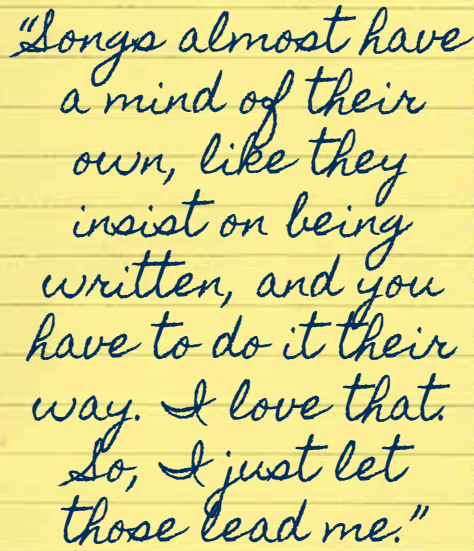 "Songs almost have
a mind of their
own, like they
insist on being
written, and you
have to do it their
way. I love that.
So, I just let
those lead me."